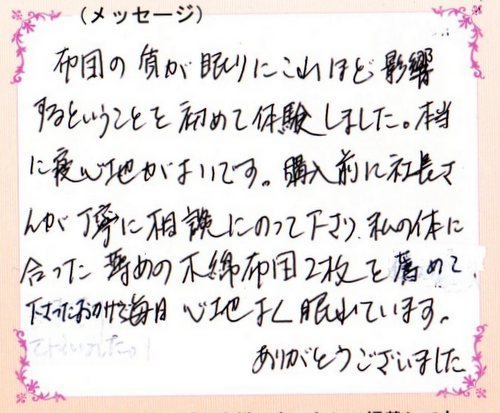 (メッセージ)
布団の質が眠りにこれほど影響
するということを初めて体験しました。本当
に寝心地がよいです。購入前に社長さ
んが丁寧に相談にのって下さり、私の体に
合った薄めの木綿布団2枚を薦めて
下さったおかげで毎日心地よく眠れています。
ありがとうございました